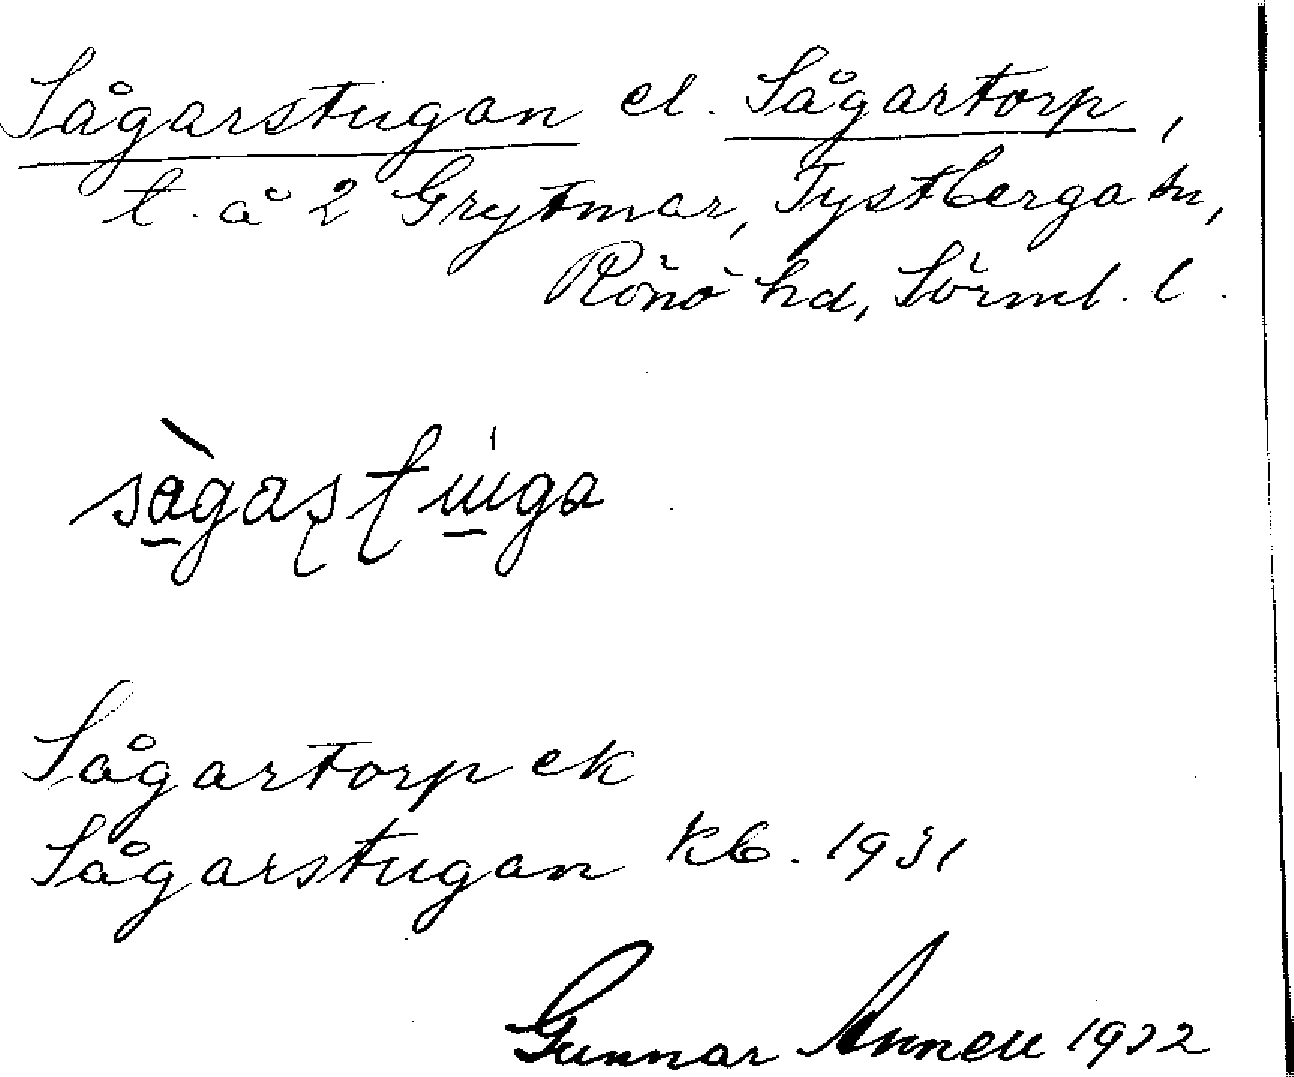 Sågarstugan el. Sågartorp,
t. å 2 Grytmar, Tystberga sn,
Rönö hd, Sörml. l.
Sågartorp ek
Sågarstugan kb. 1931
Gunnar Annell 1932